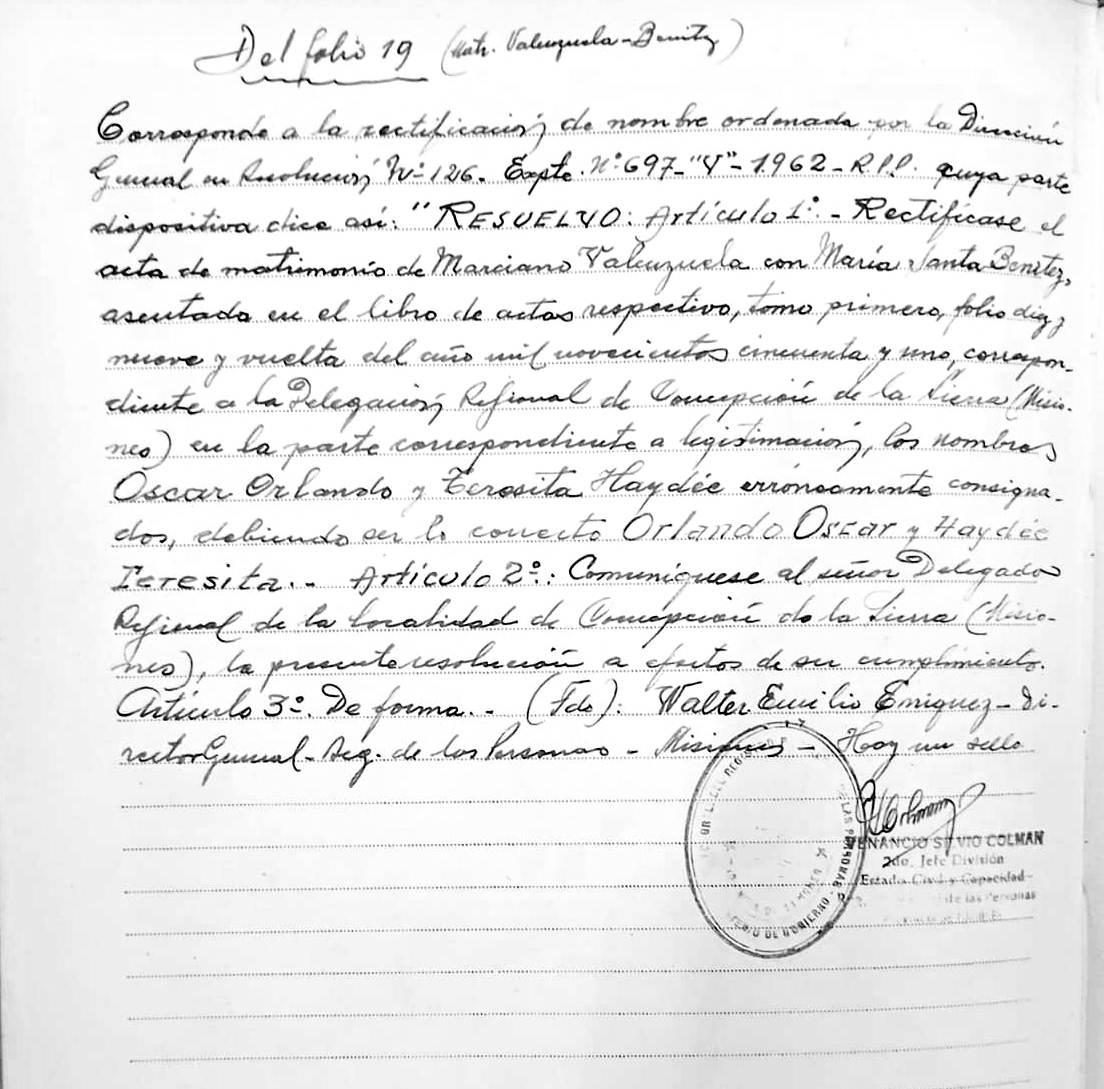 Del folio 19 (Matr. Valenzuela-Benitez)
Corresponde a la rectificación de nombre ordenada por la Dirección
General en Resolución Nº 126. Expte. Nº 697-"V"-1962-R.P.P. cuya parte
dispositiva dice así: "RESUELVO: Artículo 1º.- Rectifícase el
acta de matrimonio de Marciano Valenzuela con María Santa Benítez,
asentada en el libro de actas respectivo, tomo primero, folio diez y
nueve y vuelta del año mil novecientos cincuenta y uno, correspon-
diente a la Delegación Regional de Concepción de la Sierra (Misio-
nes) en la parte correspondiente a legitimación, los nombres
Oscar Orlando y Teresita Haydée erróneamente consigna-
dos, debiendo ser lo correcto Orlando Oscar y Haydée
Teresita.- Artículo 2º.: Comuníquese al señor Delegado
Regional de la localidad de Concepción de la Sierra (Misio-
nes), la presente resolución a efectos de su cumplimiento.
Artículo 3º. De forma.- (Fdo): Walter Emilio Eniquez - Di-
rector General - Reg. de las Personas - Misiones - Hay un sello
VENANCIO SILVIO COLMAN
2do. Jefe División
Estado Civil y Capacidad
de las Personas
LAS PERSONAS
DE GOBIERNO